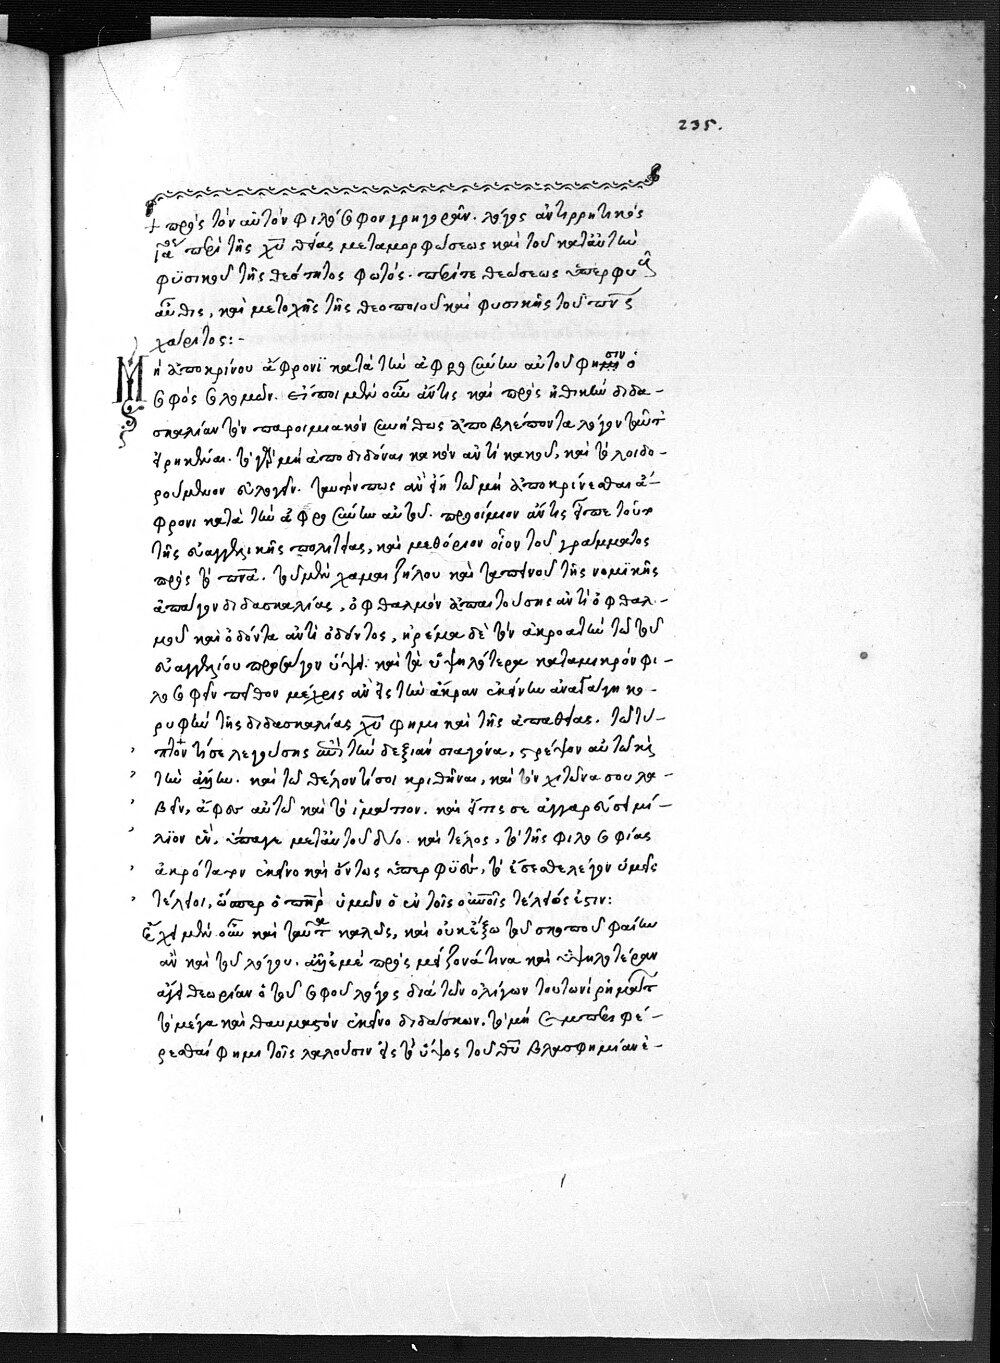 235.
+ πρὸς τὸν αὐτὸν φιλόσοφον γρηγορᾶν. λόγος ἀντιρρητικὸς
ια^ος περὶ τῆς χῡ θείας μεταμορφώσεως καὶ τοῦ κατ' αὐτὴν
φϋσικοῦ τῆς θεότητος φωτός. περί τε θεώσεως ὑπερφυ
αὖθις, καὶ μετοχῆς τῆς θεοποιοῦ καὶ φυσικῆς τοῦ πν̄ς
χάριτος:-
Μὴ ἀποκρίνου ἄφρονϊ κατὰ τὴν ἀφροσύνην αὐτοῦ φησιν ὁ
σοφὸς σολομών. εἴποι μὲν οὖν ἄν τις καὶ πρὸς ἠθικὴν διδα-
σκαλίαν τὸν παροιμιακὸν συνήθως ἀποβλέποντα λόγον ταῦτ'
εἰρηκέναι. τὸ γὰρ μὴ ἀποδιδόναι κακὸν ἀντὶ κακοῦ, καὶ τὸ λοιδο-
ρούμενον εὐλογεῖν. ταυτόν πως ἂν εἴη τῶ μὴ ἀποκρίνεσθαι ἄ-
φρονι κατὰ τὴν ἀφροσύνην αὐτοῦ. προοίμιον ἄν τις εἴπε τοῦτο
τῆς εὐαγγελικῆς πολιτείας, καὶ μεθόριον οἷον τοῦ γράμματος
πρὸς τὸ πν̄α. τοῦ μὲν χαμαιζήλου καὶ ταπεινοῦ τῆς νομϊκῆς
ἀπάγον διδασκαλίας, ὀφθαλμὸν ἀπαιτούσης ἀντὶ ὀφθαλ-
μοῦ καὶ ὀδόντα ἀντὶ ὀδόντος, ἠρέμα δὲ τὸν ἀκροατὴν τῶ τοῦ
εὐαγγελίου προσάγον ὕψει. καὶ τὰ ὑψηλότερα κατὰ μικρὸν φι-
λοσοφεῖν πεῖθον μέχρις ἂν εἰς τὴν ἄκραν ἐκείνην ἀναγάγη κο-
ρυφὴν τῆς διδασκαλίας χῡ φημι καὶ τῆς ἀπαθείας. τῶ τύ-
πτοντί σε λεγούσης ἐπὶ τὴν δεξιὰν σιαγόνα, στρέψον αὐτῶ καὶ
τὴν ἄλλην. καὶ τῶ θέλοντί σοι κριθῆναι, καὶ τὸν χιτῶνα σου λα-
βεῖν, ἄφες αὐτῶ καὶ τὸ ἱμάτιον. καὶ εἴ τις σε ἀγγαρεύσει μί-
λϊον ἓν, ὕπαγε μετ' αὐτοῦ δύο. καὶ τέλος, τὸ τῆς φιλοσοφίας
ἀκρότατον ἐκεῖνο καὶ ὄντως ὑπερφϋὲς, τὸ ἔσεσθε λέγον ὑμεῖς
τέλειοι, ὥσπερ ὁ πη̄ρ ὑμῶν ὁ ἐν τοῖς οὐνοῖς τέλειός ἐστιν:
Ἔχει μὲν οὖν καὶ ταῦτα καλῶς, καὶ οὐκ ἔξω τοῦ σκοποῦ φαίην
ἂν καὶ τοῦ λόγου. ἀλλ' ἐμὲ πρὸς μείζονά τινα καὶ ὑψηλοτέραν
ἄγει θεωρίαν ὁ τοῦ σοφοῦ λόγος διὰ τῶν ὀλίγων τουτωνὶ ῥημάτων
τὸ μέγα καὶ θαυμαστὸν ἐκεῖνο διδάσκων. τὸ μὴ συμπεριφέ-
ρεσθαί φημι τοῖς λαλοῦσιν εἰς τὸ ὕψος τοῦ θῡ βλασφημίαν ἐ-